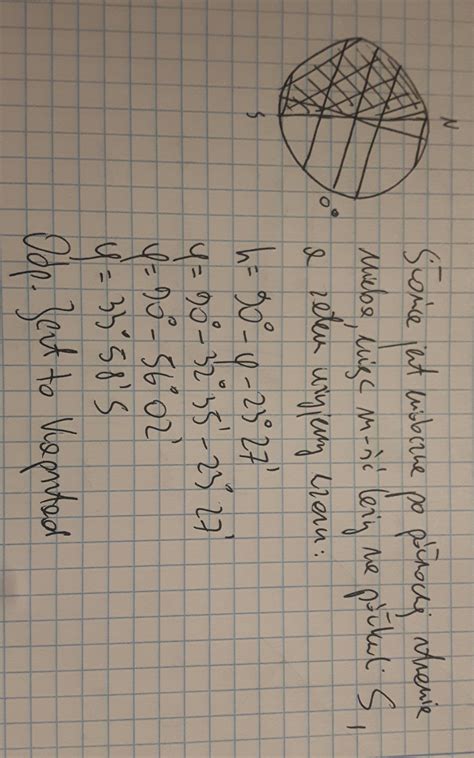 N
S
0°
Słońce jest widoczne po północnej stronie
nieba, więc m-ść leży na półkuli S,
a zatem używamy wzoru:
h = 90° - φ - 23°27'
φ = 90° - 32°35' - 23°27'
φ = 90° - 56°02'
φ = 33°58' S
Odp. Jest to Kapsztad